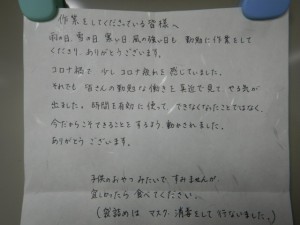 作業をしてくださっている皆様へ
雨の日、雪の日、寒い日、風の強い日も 勤勉に作業をして
くださり、ありがとうございます。
コロナ禍で 少し コロナ疲れを感じていました。
それでも 皆さんの勤勉な働きを 真近で見て やる気が
出ました。時間を有効に使って、できなくなったことではなく、
今だからこそできることを するよう 動かされました。
ありがとう ございます。
子供のおやつ みたいで、すみませんが、
宜しかったら 食べてください。
(袋詰めは マスク、消毒をして 行ないました。)